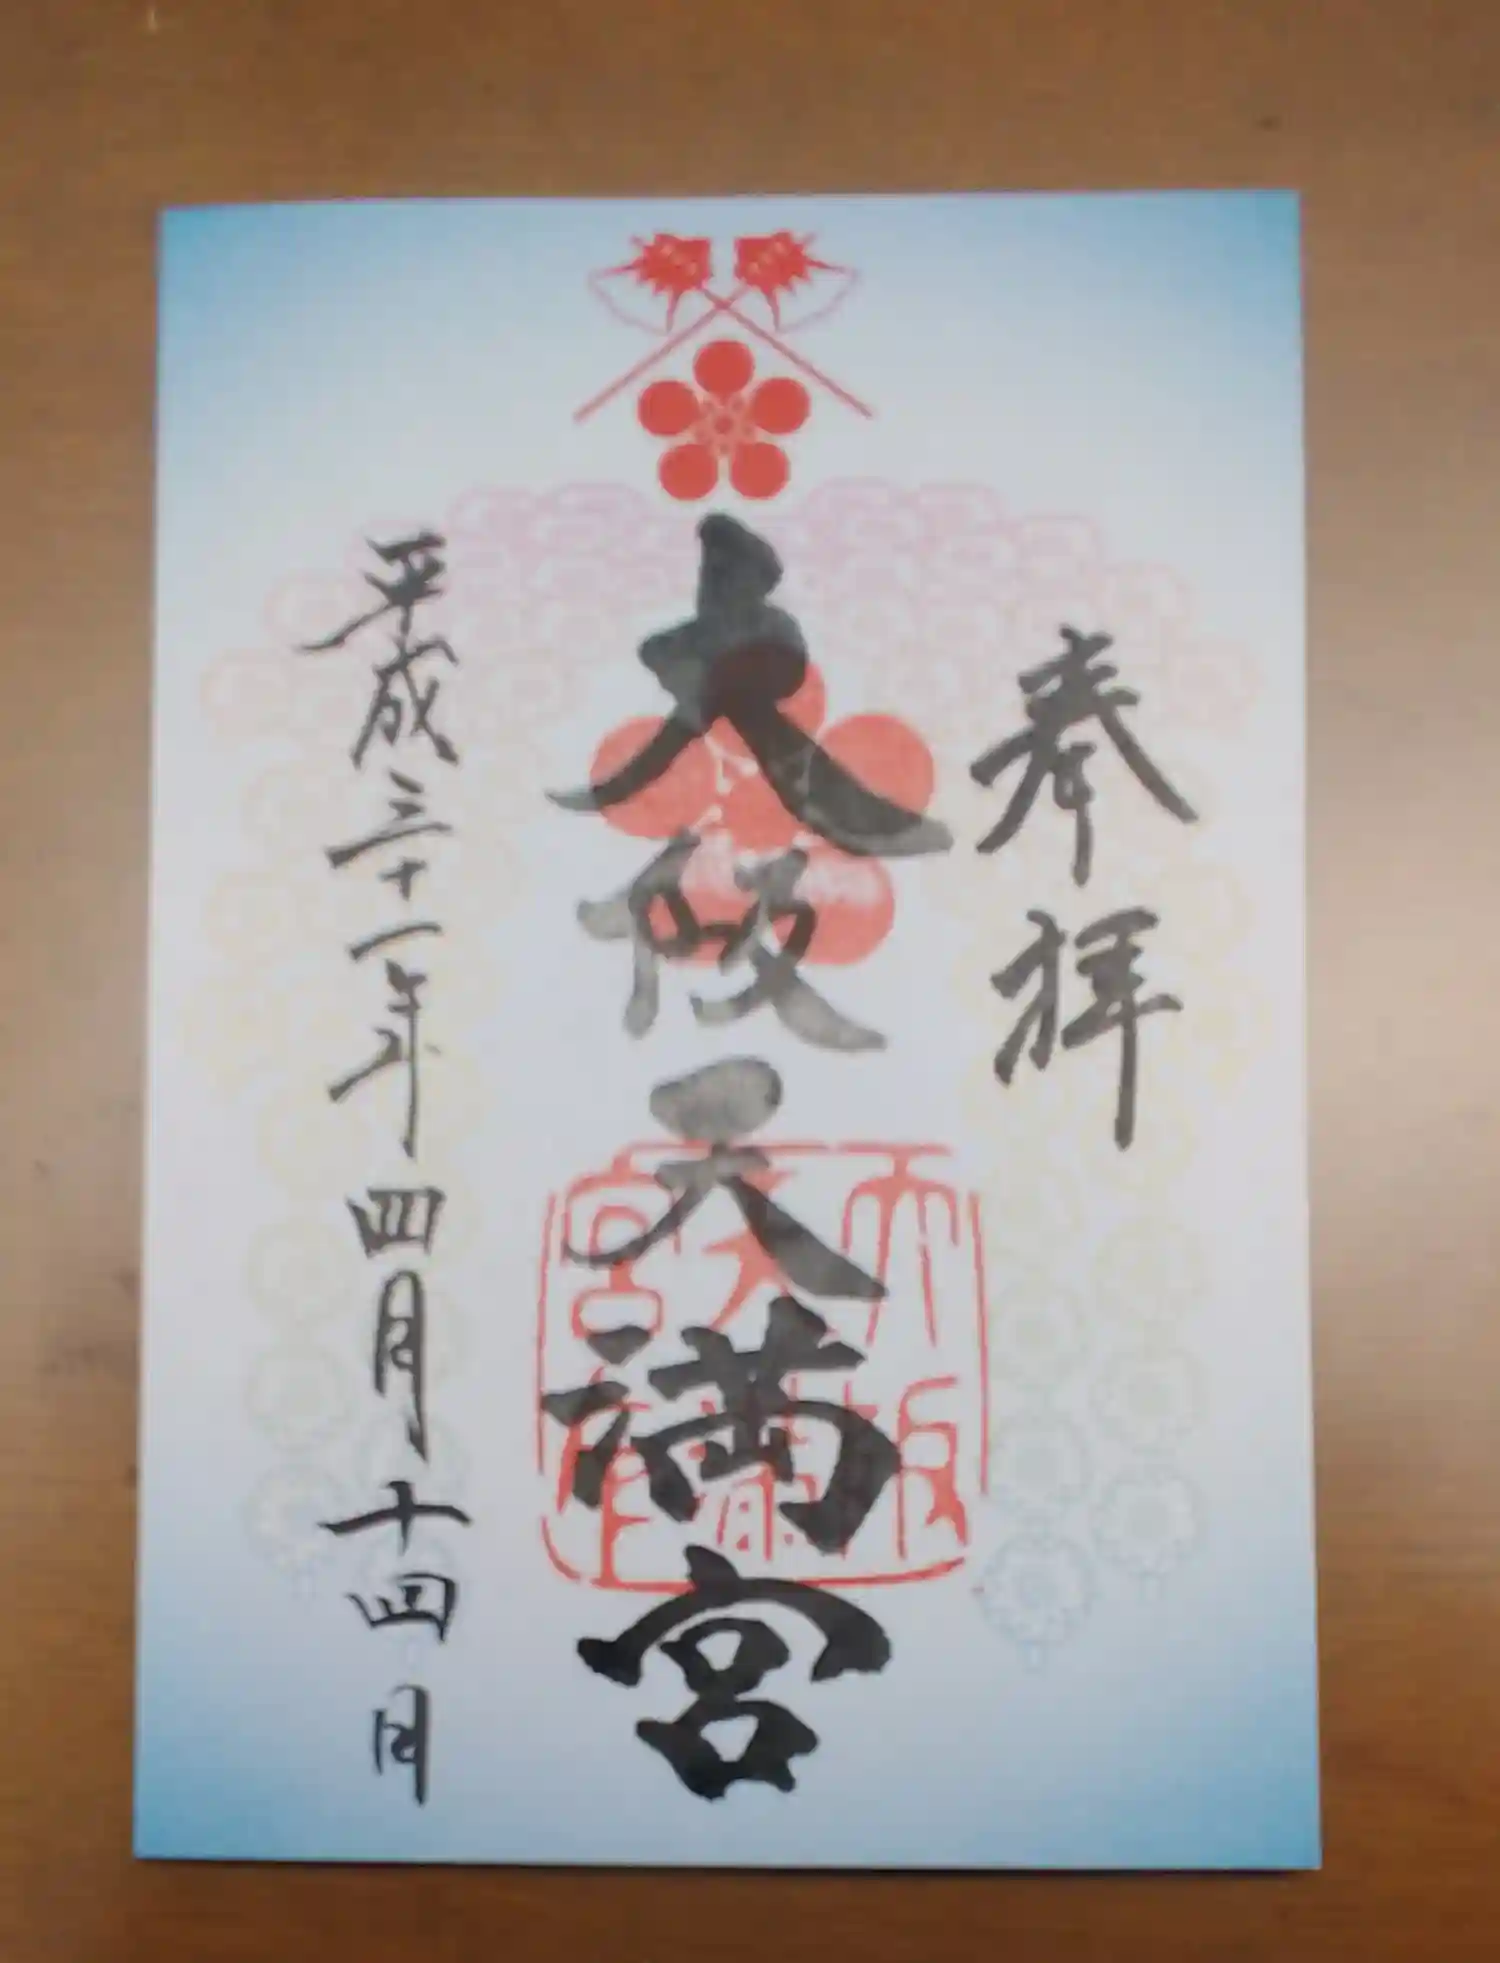 奉拝
大阪天満宮
大阪天満宮
平成三十一年四月十四日